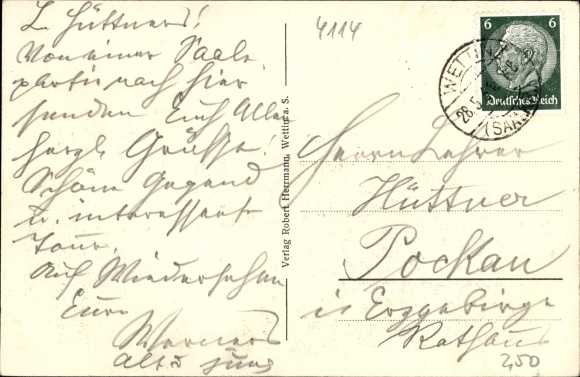 L. Hüttners!
Von einer Saale
partie nach hier
senden Euch Allen
herzl. Grüße!
Schöne Gegend
u. interessante
Tour.
Auf Wiedersehen
Eure
Werners
alt u jung
4114
Verlag Robert Herrmann, Wettin a. S.
6 6
Deutsches Reich
WETTIN
28.5.
(SAALE)
Herrn Lehrer
Hüttner
Pockau
in Erzgebirge
Rathaus
2,50